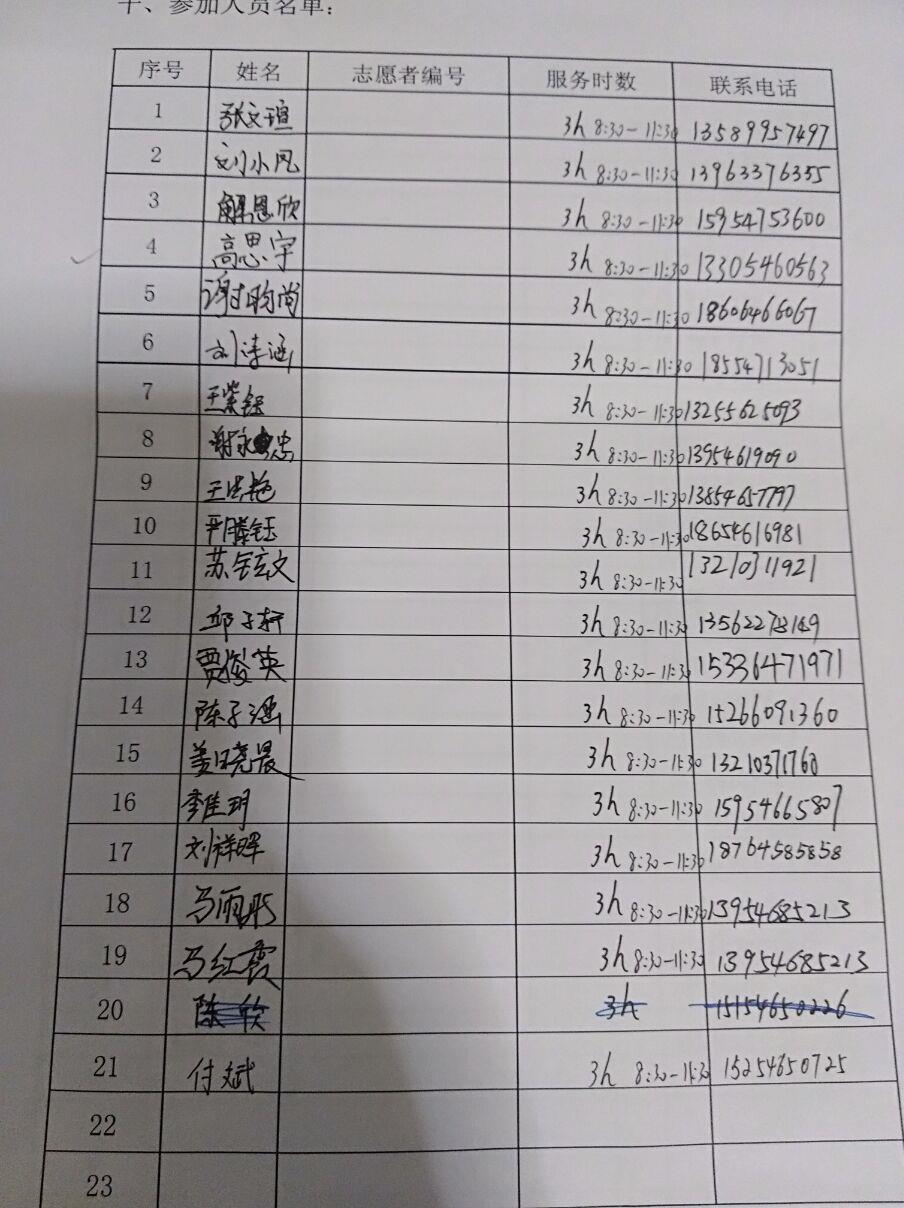 十、参加人员名单:
序号 姓名 志愿者编号 服务时数 联系电话
1 张文瑄 3h 8:30-11:30 13589957497
2 刘小凤 3h 8:30-11:30 13963376355
3 解恩欣 3h 8:30-11:30 15954753600
4 高思宇 3h 8:30-11:30 13305460563
5 谢昀尚 3h 8:30-11:30 18606466067
6 刘涛涵 3h 8:30-11:30 18554713051
7 王紫钰 3h 8:30-11:30 13255625093
8 谢永忠 3h 8:30-11:30 13954619090
9 王艳 3h 8:30-11:30 13854657797
10 尹滕钰 3h 8:30-11:30 18654616981
11 苏钰文 3h 8:30-11:30 13210311921
12 邱子轩 3h 8:30-11:30
13 贾俊英 3h 8:30-11:30 15336471971
14 陈子涵 3h 8:30-11:30 15266091360
15 姜晓晨 3h 8:30-11:30 13210371760
16 李佳玥 3h 8:30-11:30 15954665807
17 刘祥晖 3h 8:30-11:30 18764585858
18 马雨彤 3h 8:30-11:30 13954685213
19 马红霞 3h 8:30-11:30 13954685213
20 陈欣 3h 15154650226
21 付斌 3h 8:30-11:30 15254650725
22
23